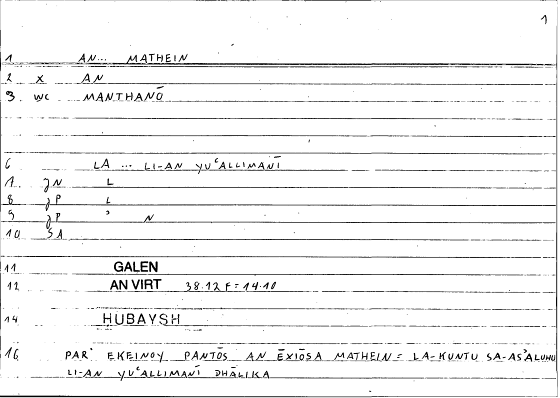 1
1 AN... MATHEIN
2 X AN
3 WC MANTHANŌ
6 LA ... LI-AN YUʿALLIMANĪ
7 JN L
8 JP L
9 JP ʾ N
10 SA
11 GALEN
12 AN VIRT 38.12 F = 14.10
14 HUBAYSH
16 PAR' EKEINOY PANTŌS AN ĒXIŌSA MATHEIN = LA-KUNTU SA-ASʾALUHU
LI-AN YUʿALLIMANĪ DHĀLIKA